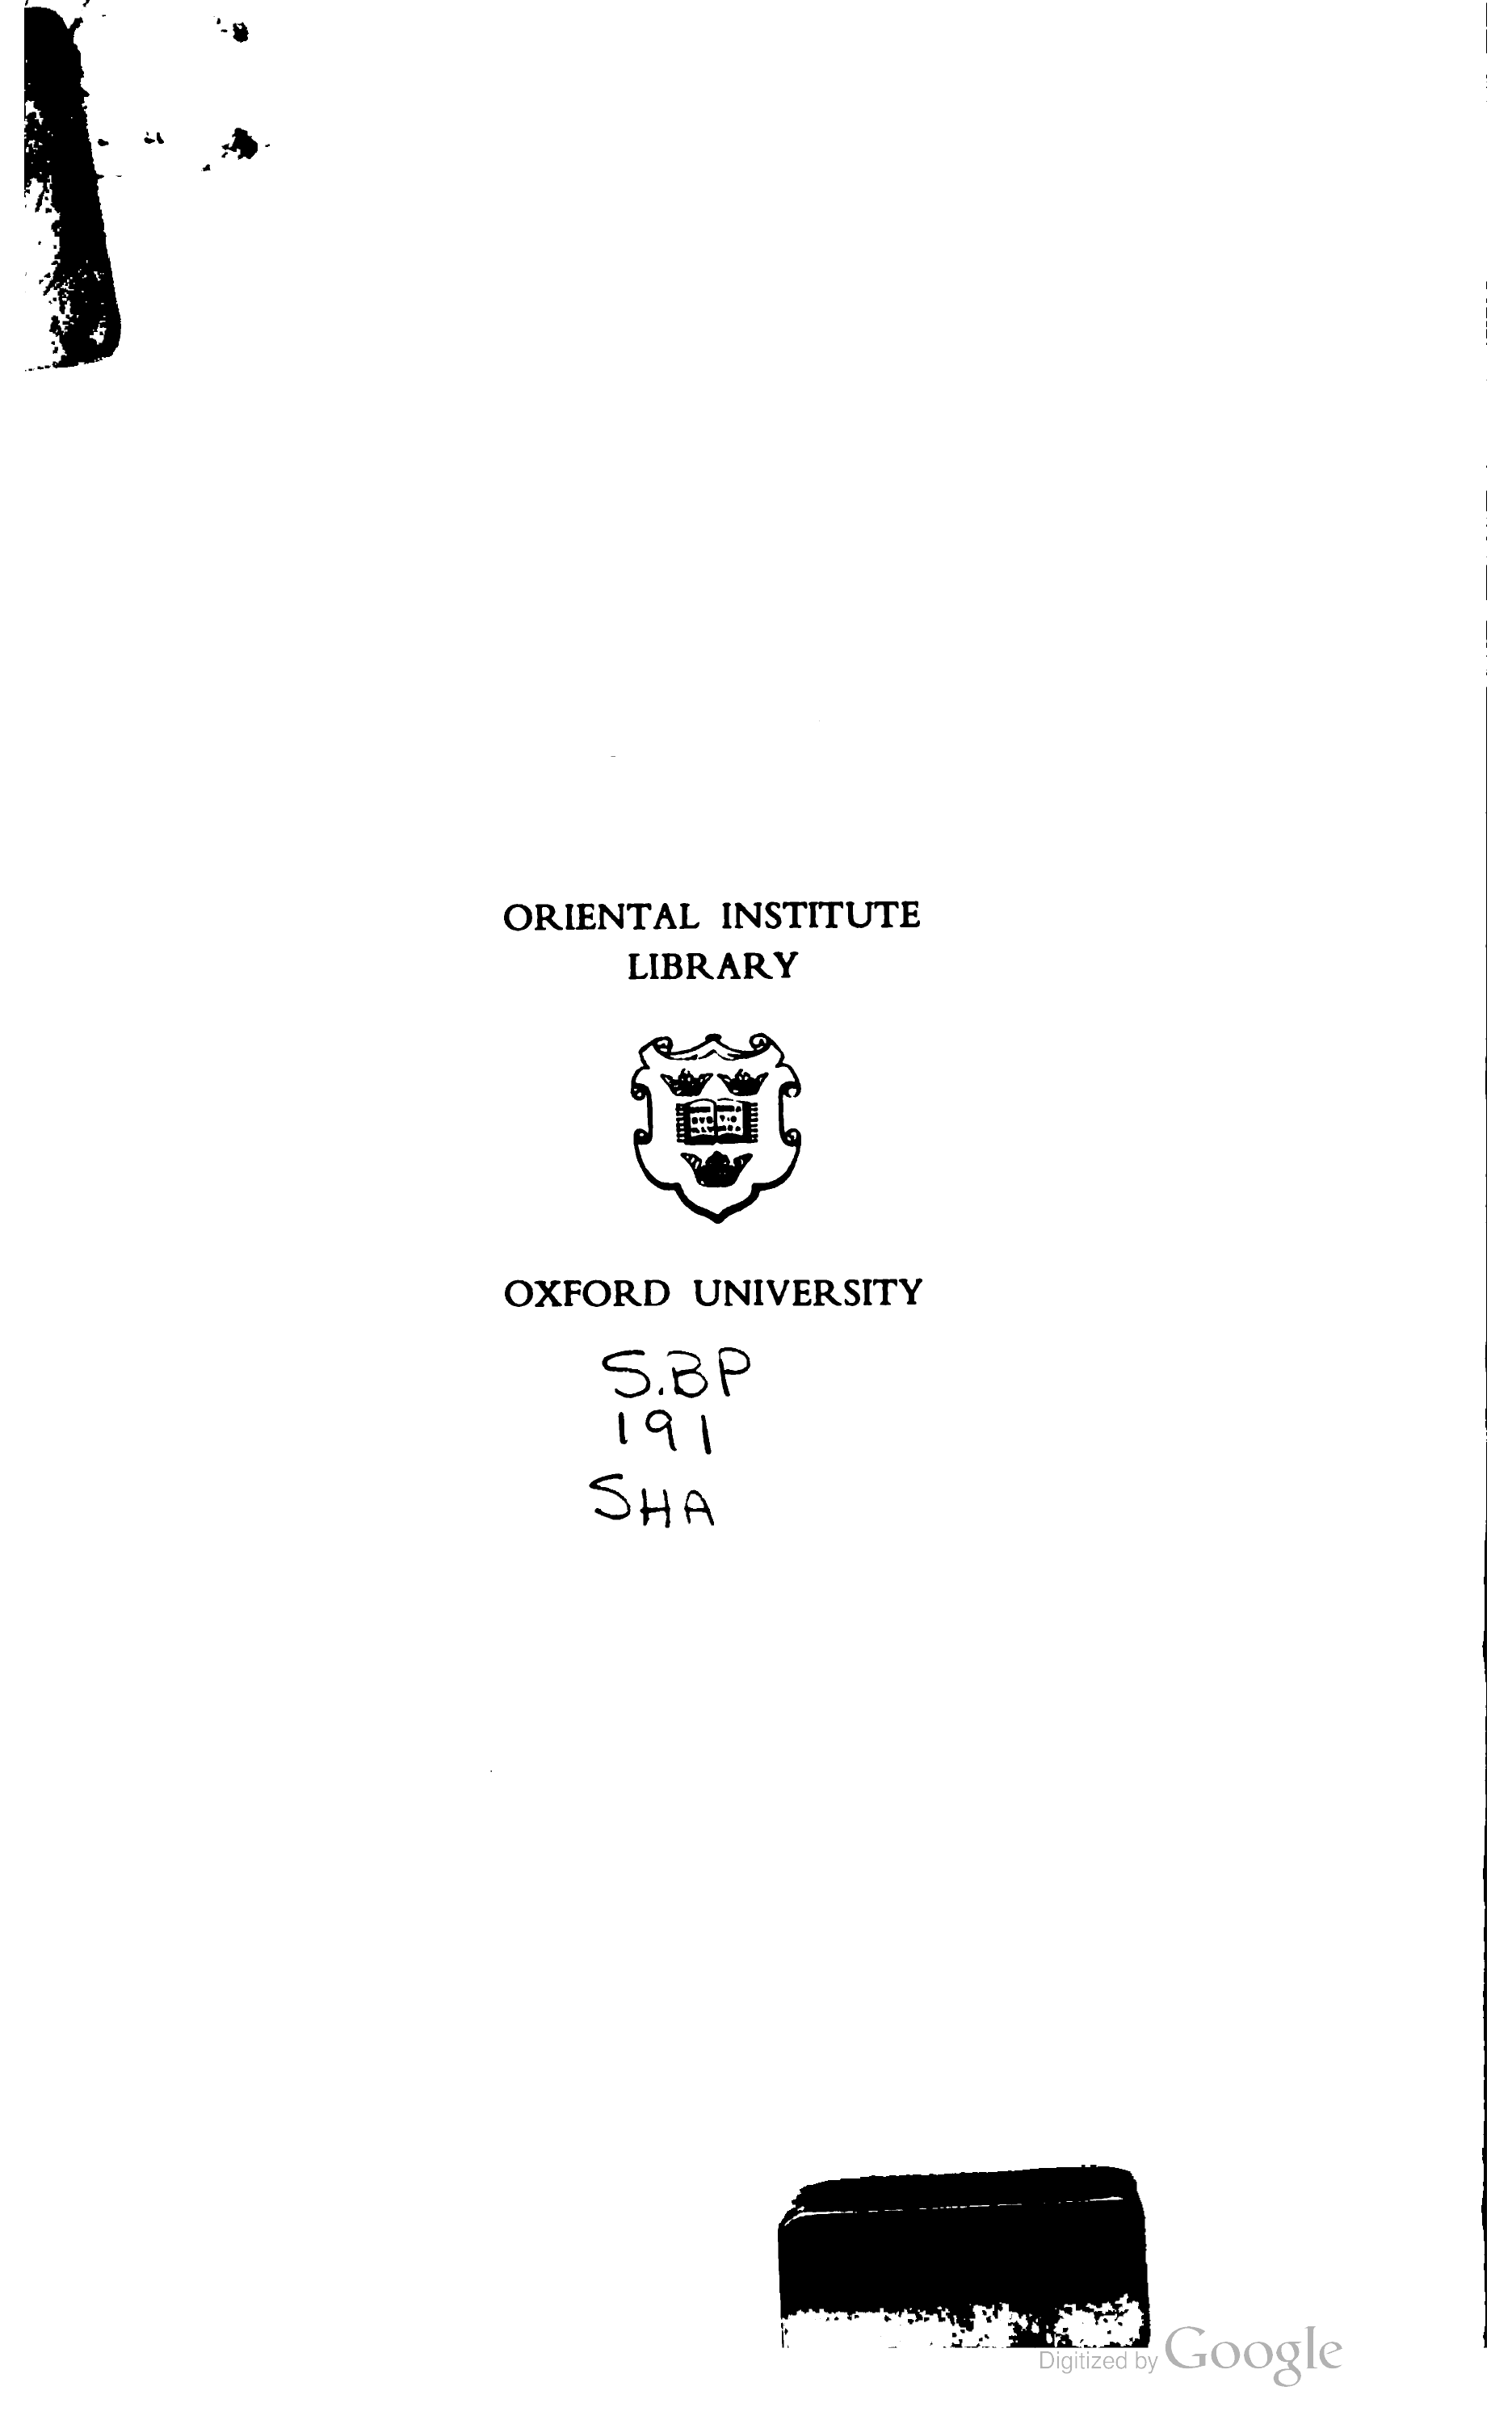 ORIENTAL INSTITUTE
LIBRARY
OXFORD UNIVERSITY
S.BP
191
SHA
Digitized by Google